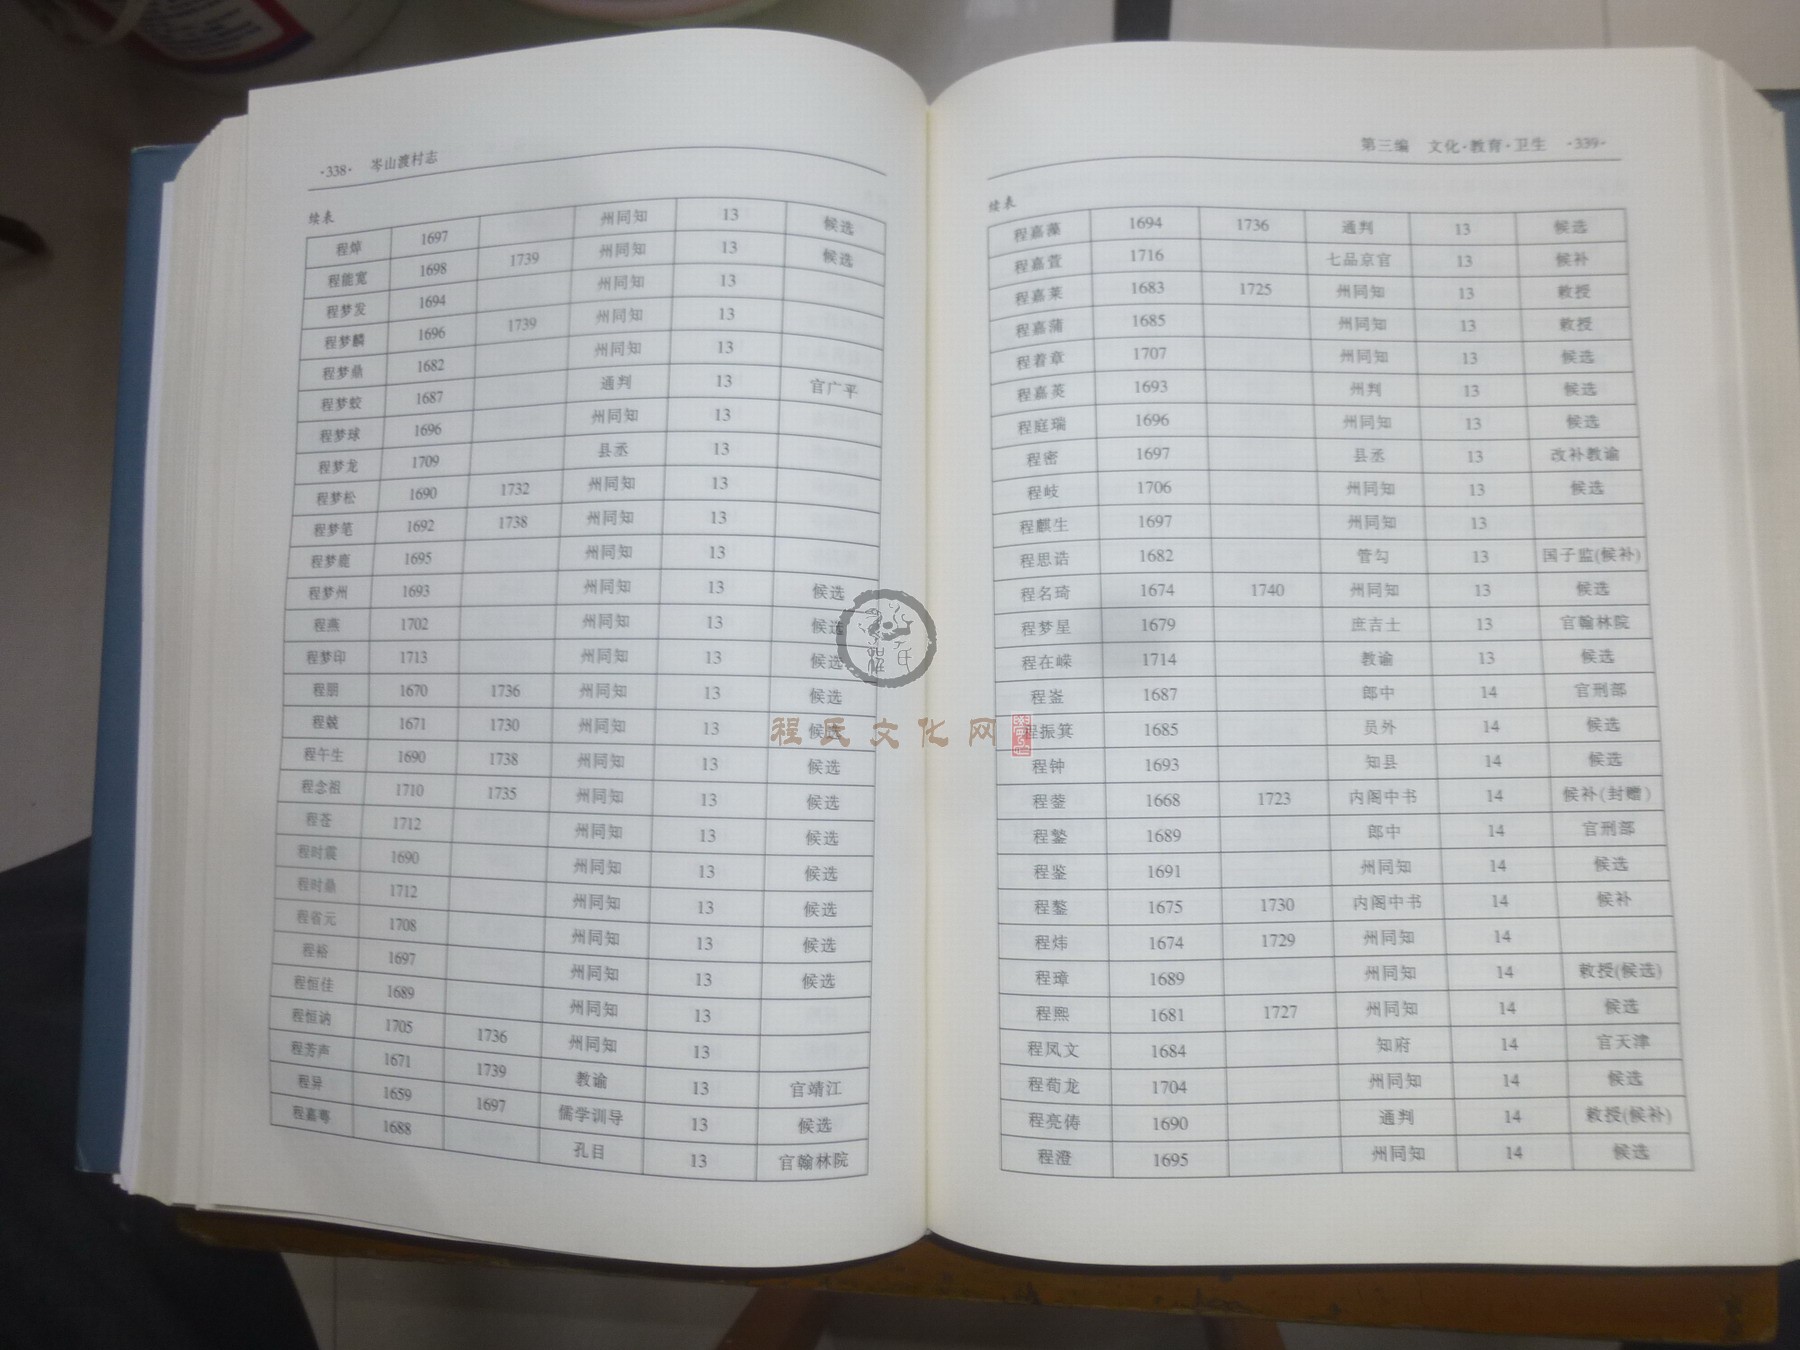 ·338· 岑山渡村志
续表
程焯 1697 州同知 13 候选
程能宽 1698 1739 州同知 13 候选
程梦发 1694 州同知 13
程梦麟 1696 1739 州同知 13
程梦鼎 1682 州同知 13
程梦蛟 1687 通判 13 官广平
程梦球 1696 州同知 13
程梦龙 1709 县丞 13
程梦松 1690 1732 州同知 13
程梦笔 1692 1738 州同知 13
程梦鹿 1695 州同知 13
程梦州 1693 州同知 13 候选
程燕 1702 州同知 13 候选
程梦印 1713 州同知 13 候选
程朋 1670 1736 州同知 13 候选
程兢 1671 1730 州同知 13 候选
程午生 1690 1738 州同知 13 候选
程念祖 1710 1735 州同知 13 候选
程苍 1712 州同知 13 候选
程时震 1690 州同知 13 候选
程时鼎 1712 州同知 13 候选
程省元 1708 州同知 13 候选
程裕 1697 州同知 13 候选
程恒佳 1689 州同知 13
程恒讷 1705 1736 州同知 13
程芳声 1671 1739 教谕 13 官靖江
程异 1659 1697 儒学训导 13 候选
程嘉粤 1688 孔目 13 官翰林院
第三编 文化·教育·卫生 ·339·
续表
程嘉藻 1694 1736 通判 13 候选
程嘉萱 1716 七品京官 13 候补
程嘉莱 1683 1725 州同知 13 教授
程嘉蒲 1685 州同知 13 教授
程着章 1707 州同知 13 候选
程嘉英 1693 州判 13 候选
程庭瑞 1696 州同知 13 候选
程密 1697 县丞 13 改补教谕
程岐 1706 州同知 13 候选
程麒生 1697 州同知 13
程思诰 1682 管勾 13 国子监(候补)
程名琦 1674 1740 州同知 13 候选
程梦星 1679 庶吉士 13 官翰林院
程在嵘 1714 教谕 13 候选
程崟 1687 郎中 14 官刑部
程振箕 1685 员外 14 候选
程钟 1693 知县 14 候选
程蓥 1668 1723 内阁中书 14 候补(封赠)
程鋆 1689 郎中 14 官刑部
程鉴 1691 州同知 14 候选
程鏊 1675 1730 内阁中书 14 候补
程炜 1674 1729 州同知 14
程璋 1689 州同知 14 教授(候选)
程熙 1681 1727 州同知 14 候选
程凤文 1684 知府 14 官天津
程荀龙 1704 州同知 14 候选
程亮俦 1690 通判 14 教授(候补)
程澄 1695 州同知 14 候选
程氏文化网